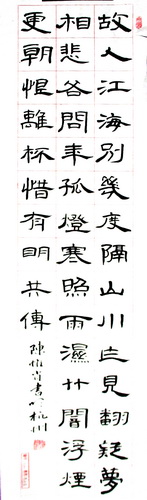 故人江海別幾度隔山川乍見翻疑夢
相悲各問年孤燈寒照雨濕竹闇浮煙
更朝恨離杯惜有明共傳
陳書於杭州